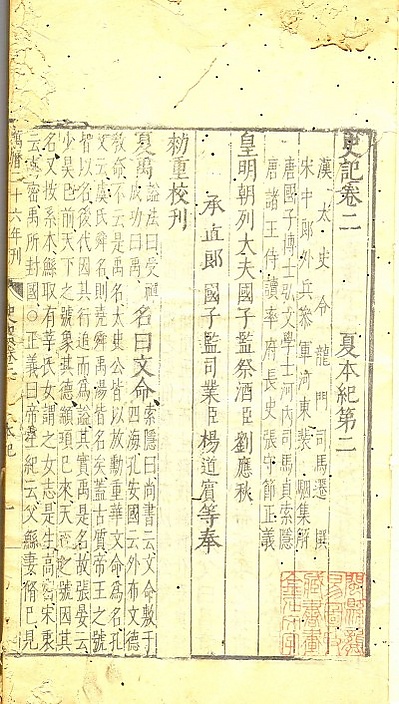 史記卷二　夏本紀第二
漢太史令龍門司馬遷撰
宋中郎外兵參軍河東裴駰集解
唐國子博士弘文學士河內司馬貞索隱
唐諸王侍讀率府長史張守節正義
皇明朝列大夫國子監祭酒臣劉應秋
承直郎國子監司業臣楊道賓等奉
勑重校刊
夏禹
謚法曰受禪
成功曰禹
名曰文命
索隱曰尚書云文命敷于
四海孔安國云外布文德
教命不云是禹名太史公皆以放勳重華文命為名孔
文云虞氏舜名則堯舜禹湯皆名矣蓋古質帝王之號
皆以名後代因其行追而為謚其實禹是名故張晏云
少昊已前天下之號象其德顓頊已來天下之號因其
名又按系本鯀取有莘氏女謂之女志是生高密宋衷
云高密禹所封國○正義曰帝王紀云父鯀妻脩己見
十六年刊